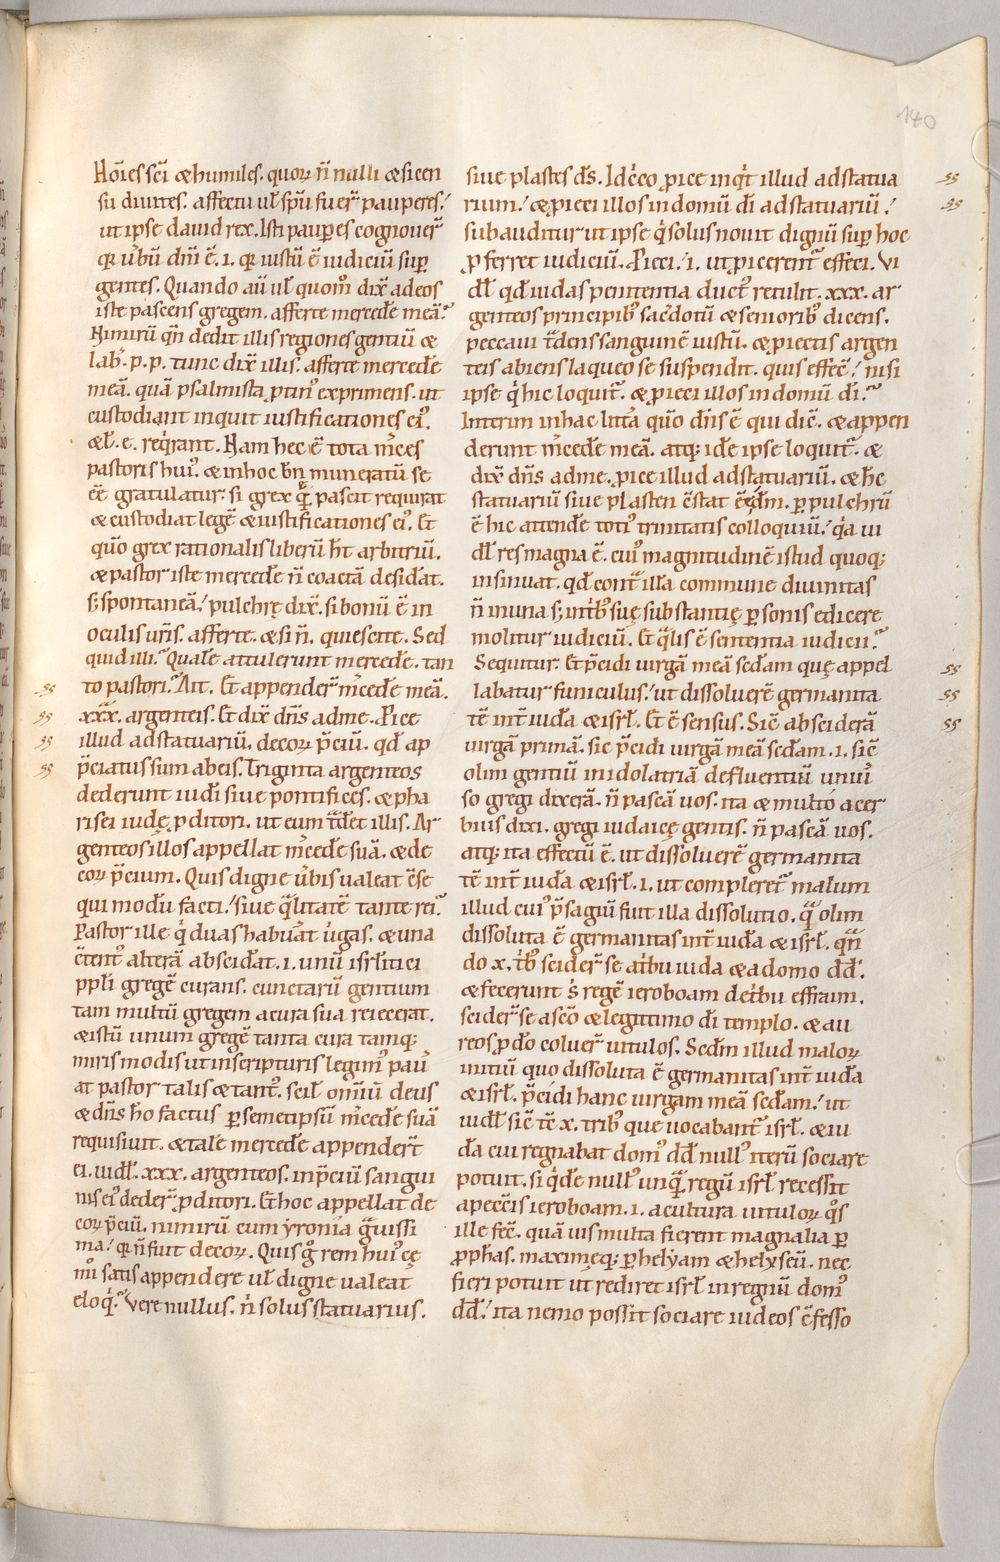 140
Hoīes scī & humiles. quoꝝ n̄ nulli & si cen
su diuites. affectu ul̄ spū fuer̄ pauperes!
ut ipse dauid rex. Isti pauꝑes cognouer̄
qꝛ ūbū dn̄i ē. i. qꝛ iustū ē iudiciū suꝑ
gentes. Quando aū ul̄ quom̄ dix̄ ad eos
iste pascens gregem. afferte mercedē meā?
Nimirū qn̄ dedit illis regiones gentiū &
lab. p.p. tunc dix̄ illis. afferte mercedē
meā. quā psalmista ꝑtinꝰ exprimens. ut
custodiant inquit iustificationes eiꝰ.
& l. e. reqrant. Nam hec ē tota m̄ces
pastoris huiꝰ. & in hoc bn̄ muneratū se
ēē gratulatur. si grex qꝫ pascit requirat
& custodiat legē & iustificationes eiꝰ. Et
quō grex rationalis liberū ht̄ arbitriū.
& pastor iste mercedē n̄ coactā desidāt.
sꝫ spontaneā! pulchrę dix̄. si bonū ē in
oculis ur̄is. afferte. & si n̄. quiescite. Sed
quid illi? Qualē attulerunt mercedē. tan
to pastori? Ait. Et appender̄ m̄cedē meā.
xxx. argenteis. Et dix̄ dn̄s ad me. Pice
illud ad statuariū. decoꝝ p̄ciū. qd̄ ap
p̄ciatus sum ab eis. Triginta argenteos
dederunt iudi siue pontifices. & pha
risei iudę ꝓditori. ut eum t̄det illis. Ar
genteos illos appellat m̄cedē suā. & de
coꝝ p̄cium. Quis digne ūbis ualeat ēse
qui modū facti! siue q̄litatē tante rei?
Pastor ille q̇ duas habuāt ūgas. & una
ētentꝰ alterā abscidāt. i. unū isrl̄itici
ppl̄i gregē curans. cunctarū gentium
tam multū gregem a cura sua reiecerat.
& istū unum gregē tanta cura tamqꝫ
miris modis ut in scripturis legimꝰ pau
at pastor talis & tantꝰ. scil̄ omīū deus
& dn̄s ho factus ꝑ semetipsū m̄cedē suā
requisiuit. & talē mercedē appender̄t
ei. uidl̄. xxx. argenteos. in p̄ciū sangui
nis eiꝰ deder̄ ꝓditori. Et hoc appellat de
coꝝ p̄ciū. nimirū cum ẏronia g̃uissi
ma! qꝛ n̄ fuit decoꝝ. Quis g̊ rem huiꝰcę
m̊i satis appendere ul̄ digne ualeat
eloq̇? Vere nullus. n̊ solus statuarius.
siue plastes ds̄. Idc̄co ꝓice inq̇t illud ad statua
rium! & ꝓieci illos in domū dī ad statuariū!
subauditur ut ipse q̇ solus nouit dignū suꝑ hoc
ꝓferret iudiciū. Pieci. i. ut ꝓicerent̄ effeci. Vi
dl̄ qd̄ iudas penitentia ductꝰ retulit. xxx. ar
genteos principibꝰ sacdotū & senioribꝰ dicens.
peccaui t̄dens sanguinē iustū. & ꝓiectis argen
teis abiens laqueo se suspendit. quis effec̄! nisi
ipse q̇ hic loquit̄. & ꝓieci illos in domū dī?
Interim in hac litt̄a quō dn̄s ē qui dic̄. & appen
derunt m̄cedē meā. atqꝫ idē ipse loquit̄. &
dix̄ dn̄s ad me. ꝓice illud ad statuariū. & hc̄
statuariū siue plasten ēstat ēē dm̄. Per pulchrū
ē hic attendē totiꝰ trinitatis colloquiū! q̇a ui
dl̄ res magna ē. cuiꝰ magnitudinē istud quoqꝫ
insinuat. qd̄ cont̄ illa commune diuinitas
n̄ in una sꝫ int̊bꝰ suę substantię ꝑsonis edicere
molitur iudiciū. Et q̄lis ē sententia iudicii?
Sequitur. Et p̄cidi uirgā meā scdam quę appel
labatur funiculus! ut dissoluerē germanita
tē int̄ iudā & isrl̄. Et ē sensus. Sic̄ abscideră
uirgā primā. sic p̄cidi uirgā meā scdam. i. sic̄
olim gentiū in idolatriā defluentiū uniuꝰ
so gregi dixerā. n̄ pascā uos. ita & multo acer
bius dixi. gregi iudaicę gentis. n̄ pascā uos.
atqꝫ ita effectū ē. ut dissoluerē germanita
tē int̄ iudā & isrl̄. i. ut compleret̄ malum
illud cuiꝰ p̄sagiū fuit illa dissolutio. qā olim
dissoluta ē germanitas int̄ iudā & isrl̄. qn̄
do x. t̊bꝰ scider̄ se a t̊bu iuda & a domo dd̄.
& fecerunt s̊ regē ieroboam de t̊bu effraim.
scider̄ se a scō & legitimo dī templo. & au
reos ꝓ dō coluer̄ uitulos. Scdm̄ illud maloꝝ
initiū quo dissoluta ē germanitas int̄ iudā
& isrl̄. p̄cidi hanc uirgam meā scdam! ut
uidl̄ sic̄ tē x. tribꝰ que uocabant̄ isrl̄. & iu
dā cui regnabat domꝰ dd̄ nullꝰ iterū sociare
potuit. si q̇dē nullꝰ unq̄ regū isrl̄ recessit
a pecc̄is ieroboam. i. a cultura uituloꝝ q̊s
ille fec̄. quāuis multa fierent magnalia ꝑ
ꝓphas. maximeqꝫ ꝑ helẏam & helyseū. nec
fieri potuit ut rediret isrl̄ in regnū domꝰ
dd̄! ita nemo possit sociare iudeos c̄fesso